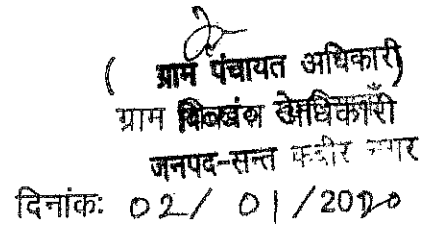 ( ग्राम पंचायत अधिकारी)
ग्राम अधिकारी
जनपद-सन्त कबीर नगर
दिनांक: 02/ 01/2020